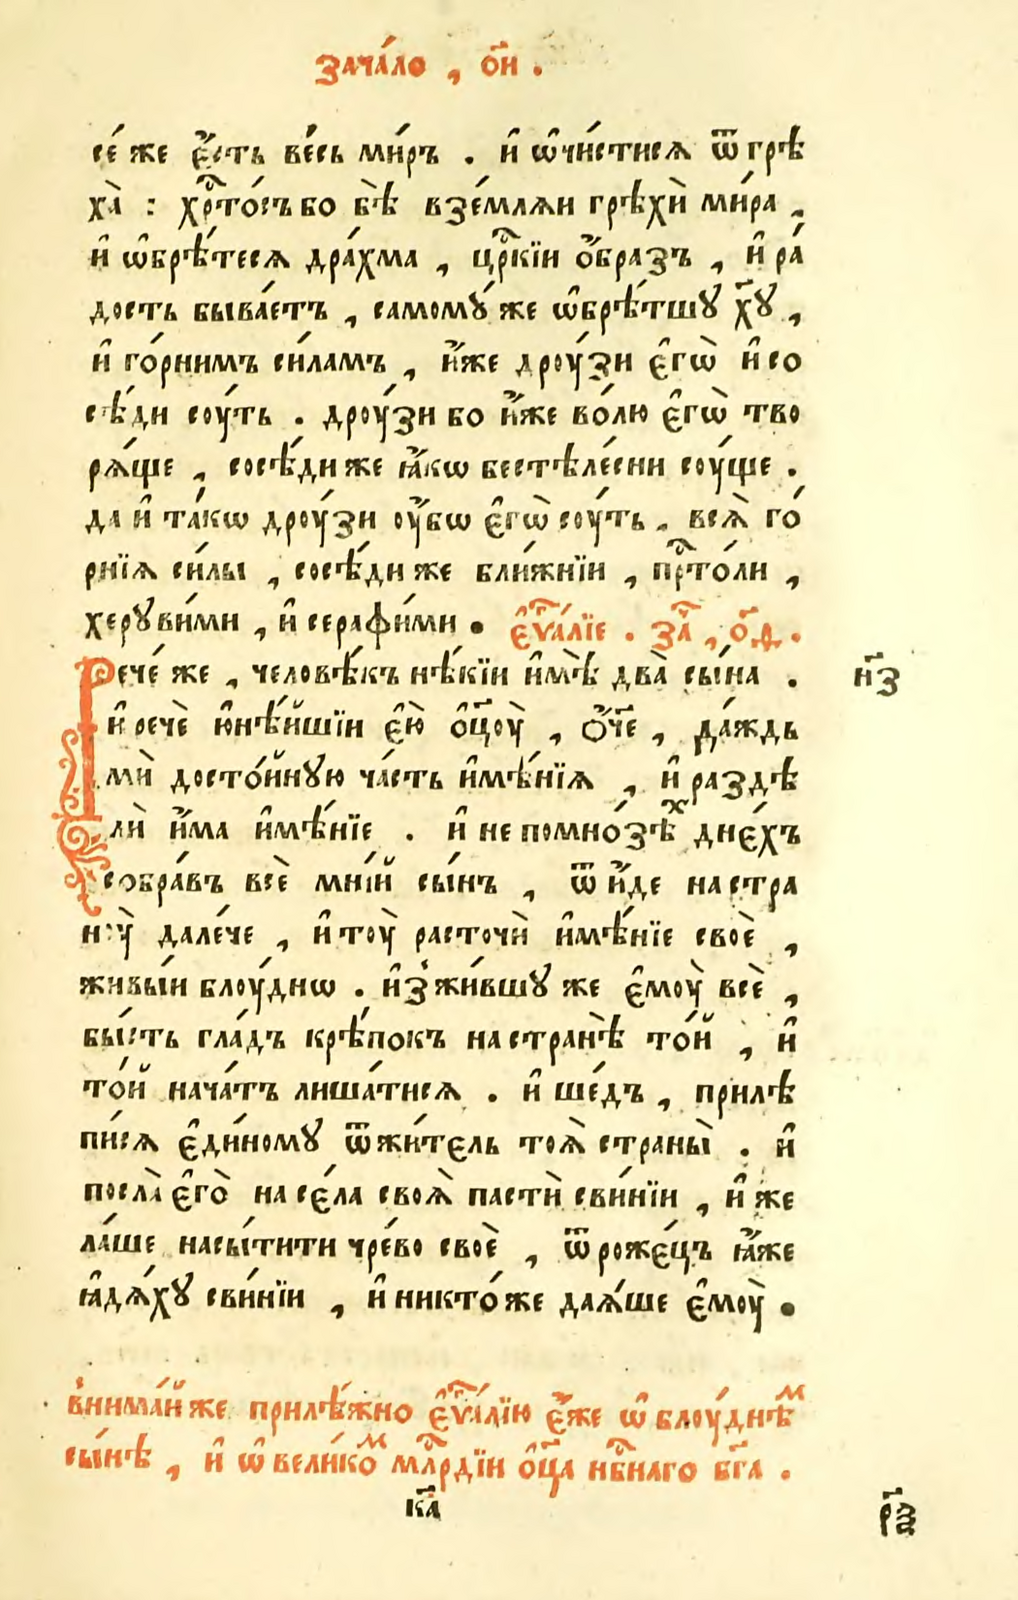 зача́ло , о҃и .
се́ же є҆́сть ве́сь ми́ръ . и҆ ѡ҆чи́стисѧ ѿ грѣ
ха̀ : хрⷭ҇то́съ бо бѣ̀ взе́млѧи грѣхѝ ми́ра ,
и҆ ѡ҆брѣ́тесѧ дра́хма , црⷭ҇кїи о҆́бразъ , и҆ ра́
дость быва́етъ , самомꙋ́ же ѡ҆брѣ́тшꙋ хꙋ҃ ,
и҆ го́рнимъ си́ламъ , и҆́же дроу́зи є҆гѡ̀ и҆ со
сѣ́ди соу́ть . дроу́зи бо и҆́же во́лю є҆гѡ̀ тво
рѧ́ще , сосѣ́ди же ꙗ҆́кѡ бестѣле́сни соу́ще .
да и҆ та́кѡ дроу́зи оу҆́бѡ є҆гѡ̀ соу́ть , всѧ̀ го́
рнїѧ си́лы , сосѣ́ди же бли́жнїи , прⷭ҇то́ли ,
херꙋви́ми , и҆ серафи́ми . є҆ѵⷢ҇а́лїе . заⷱ҇ , о҃ѳ .
Рече́ же , человѣ́къ нѣ́кїи и҆мѣ̀ два̀ сы́на . н҃з
и҆ речѐ ю҆нѣ́йшїи є҆ю̀ о҆ц҃оу̀ , о҆́ч҃е , да́ждь
мѝ досто́йнꙋю ча́сть и҆мѣ́нїѧ , и҆ раздѣ
лѝ и҆́ма и҆мѣ́нїе . и҆ не помно́зѣⷯ дне́хъ
собра́въ всѐ мні́й сы́нъ , ѿ и҆́де на стра
ноу̀ дале́че , и҆ тоу̀ расточѝ и҆мѣ́нїе своѐ ,
живы́и блоу́днѡ . и҆зжи́вшꙋ же є҆моу̀ всѐ ,
бы́сть гла́дъ крѣ́покъ на странѣ̀ то́й , и҆
то́й нача́тъ лиша́тисѧ . и҆ ше́дъ , прилѣ
пи́сѧ є҆ди́номꙋ ѿ жи́тель тоѧ̀ страны̀ . и҆
посла̀ є҆го̀ на се́ла своѧ̀ пастѝ сви́нїи , и҆ же
ла́ше насы́тити чре́во своѐ , ѿ роже́цъ ꙗ҆́же
ꙗ҆дѧ́хꙋ сви́нїи , и҆ никто́ же даѧ́ше є҆моу̀ .
внима́й же прилѣ́жно є҆ѵⷢ҇а́лїю є҆́же ѡ҆ блоу́днѣⷨ
сы́нѣ , и҆ ѡ҆ вели́коⷨ млⷭ҇рдїи о҆ц҃а нбⷭ҇наго бг҃а .
к҃а